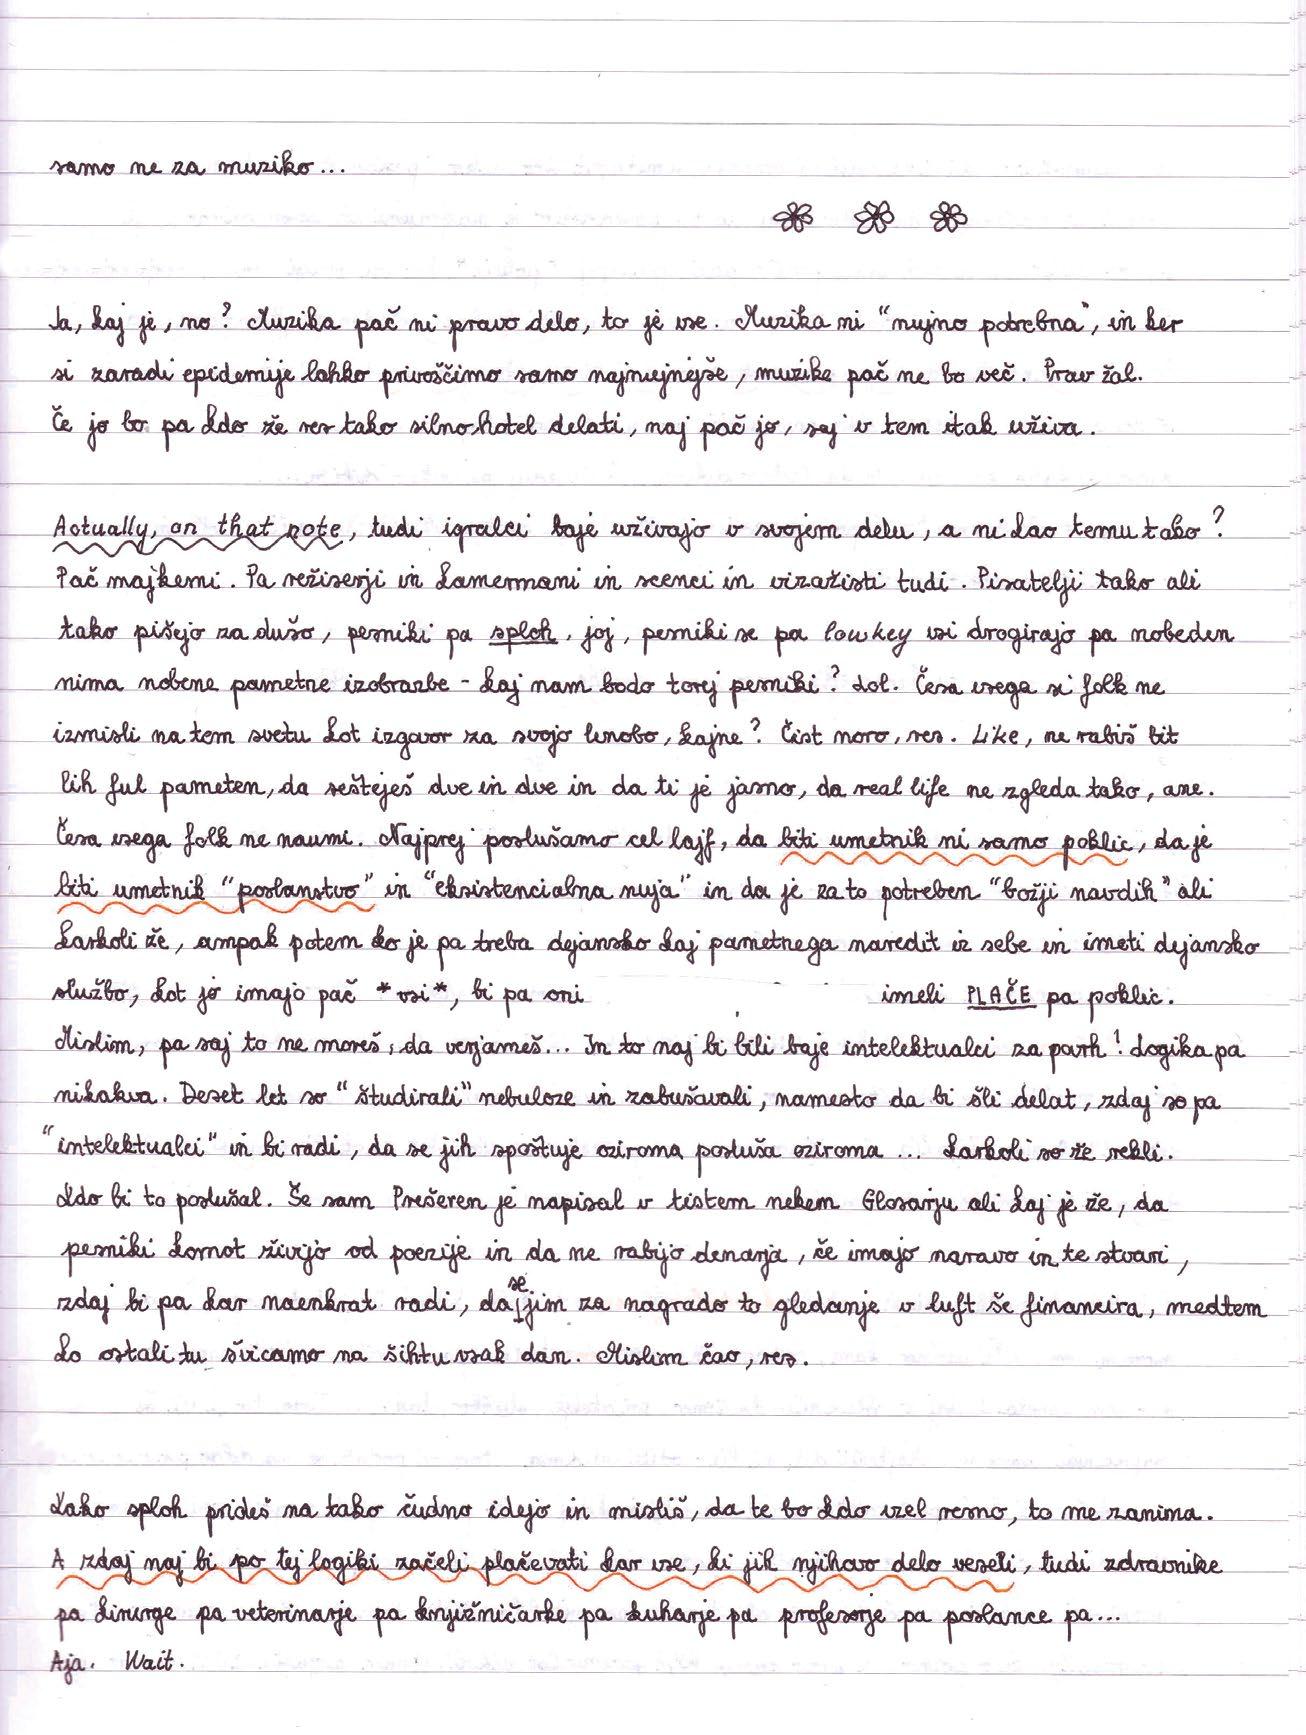 samo ne za muziko...
Ja, kaj je, no? Muzika pač ni pravo delo, to je vse. Muzika ni "nujno potrebna", in ker
si zaradi epidemije lahko privoščimo samo najnujnejše, muzike pač ne bo več. Prav žal.
Če jo bo pa kdo že res tako silno hotel delati, naj pač jo, saj v tem itak uživa.
Actually, on that note, tudi igralci baje uživajo v svojem delu, a ni kao temu tako?
Pač majkemi. Pa režiserji in kamermani in scenci in vizažisti tudi. Pisatelji tako ali
tako pišejo za dušo, pesniki pa sploh, joj, pesniki se pa lowkey vsi drogirajo pa nobeden
nima nobene pametne izobrazbe - kaj nam bodo torej pesniki? Lol. Česa vsega si folk ne
izmisli na tem svetu kot izgovor za svojo lenobo, kajne? Čist noro, res. Like, ne rabiš bit
lih ful pameten, da sešteješ dve in dve in da ti je jasno, da real life ne zgleda tako, ane.
Česa vsega folk ne naumi. Najprej poslušamo cel lajf, da biti umetnik ni samo poklic, da je
biti umetnik "poslanstvo" in "eksistencialna nuja" in da je za to potreben "božji navdih" ali
karkoli že, ampak potem ko je pa treba dejansko kaj pametnega naredit iz sebe in imeti dejansko
službo, kot jo imajo pač *vsi*, bi pa oni imeli PLAČE pa poklic.
Mislim, pa saj to ne moreš, da verjameš... In to naj bi bili baje intelektualci za povrh! Logika pa
nikakva. Deset let so "študirali" nebuloze in zabušavali, namesto da bi šli delat, zdaj so pa
"intelektualci" in bi radi, da se jih spoštuje oziroma posluša oziroma ... karkoli so že rekli.
Kdo bi to poslušal. Še sam Prešeren je napisal v tistem nekem Glosarju ali kaj je že, da
pesniki komot živijo od poezije in da ne rabijo denarja, če imajo naravo in te stvari,
zdaj bi pa kar naenkrat radi, da se jim za nagrado to gledanje v luft še financira, medtem
ko ostali tu švicamo na šihtu vsak dan. Mislim čao, res.
Kako sploh prideš na tako čudno idejo in misliš, da te bo kdo vzel resno, to me zanima.
A zdaj naj bi po tej logiki začeli plačevati kar vse, ki jih njihovo delo veseli, tudi zdravnike
pa kirurge pa veterinarje pa knjižničarke pa kuharje pa profesorje pa poslance pa...
Aja. Wait.